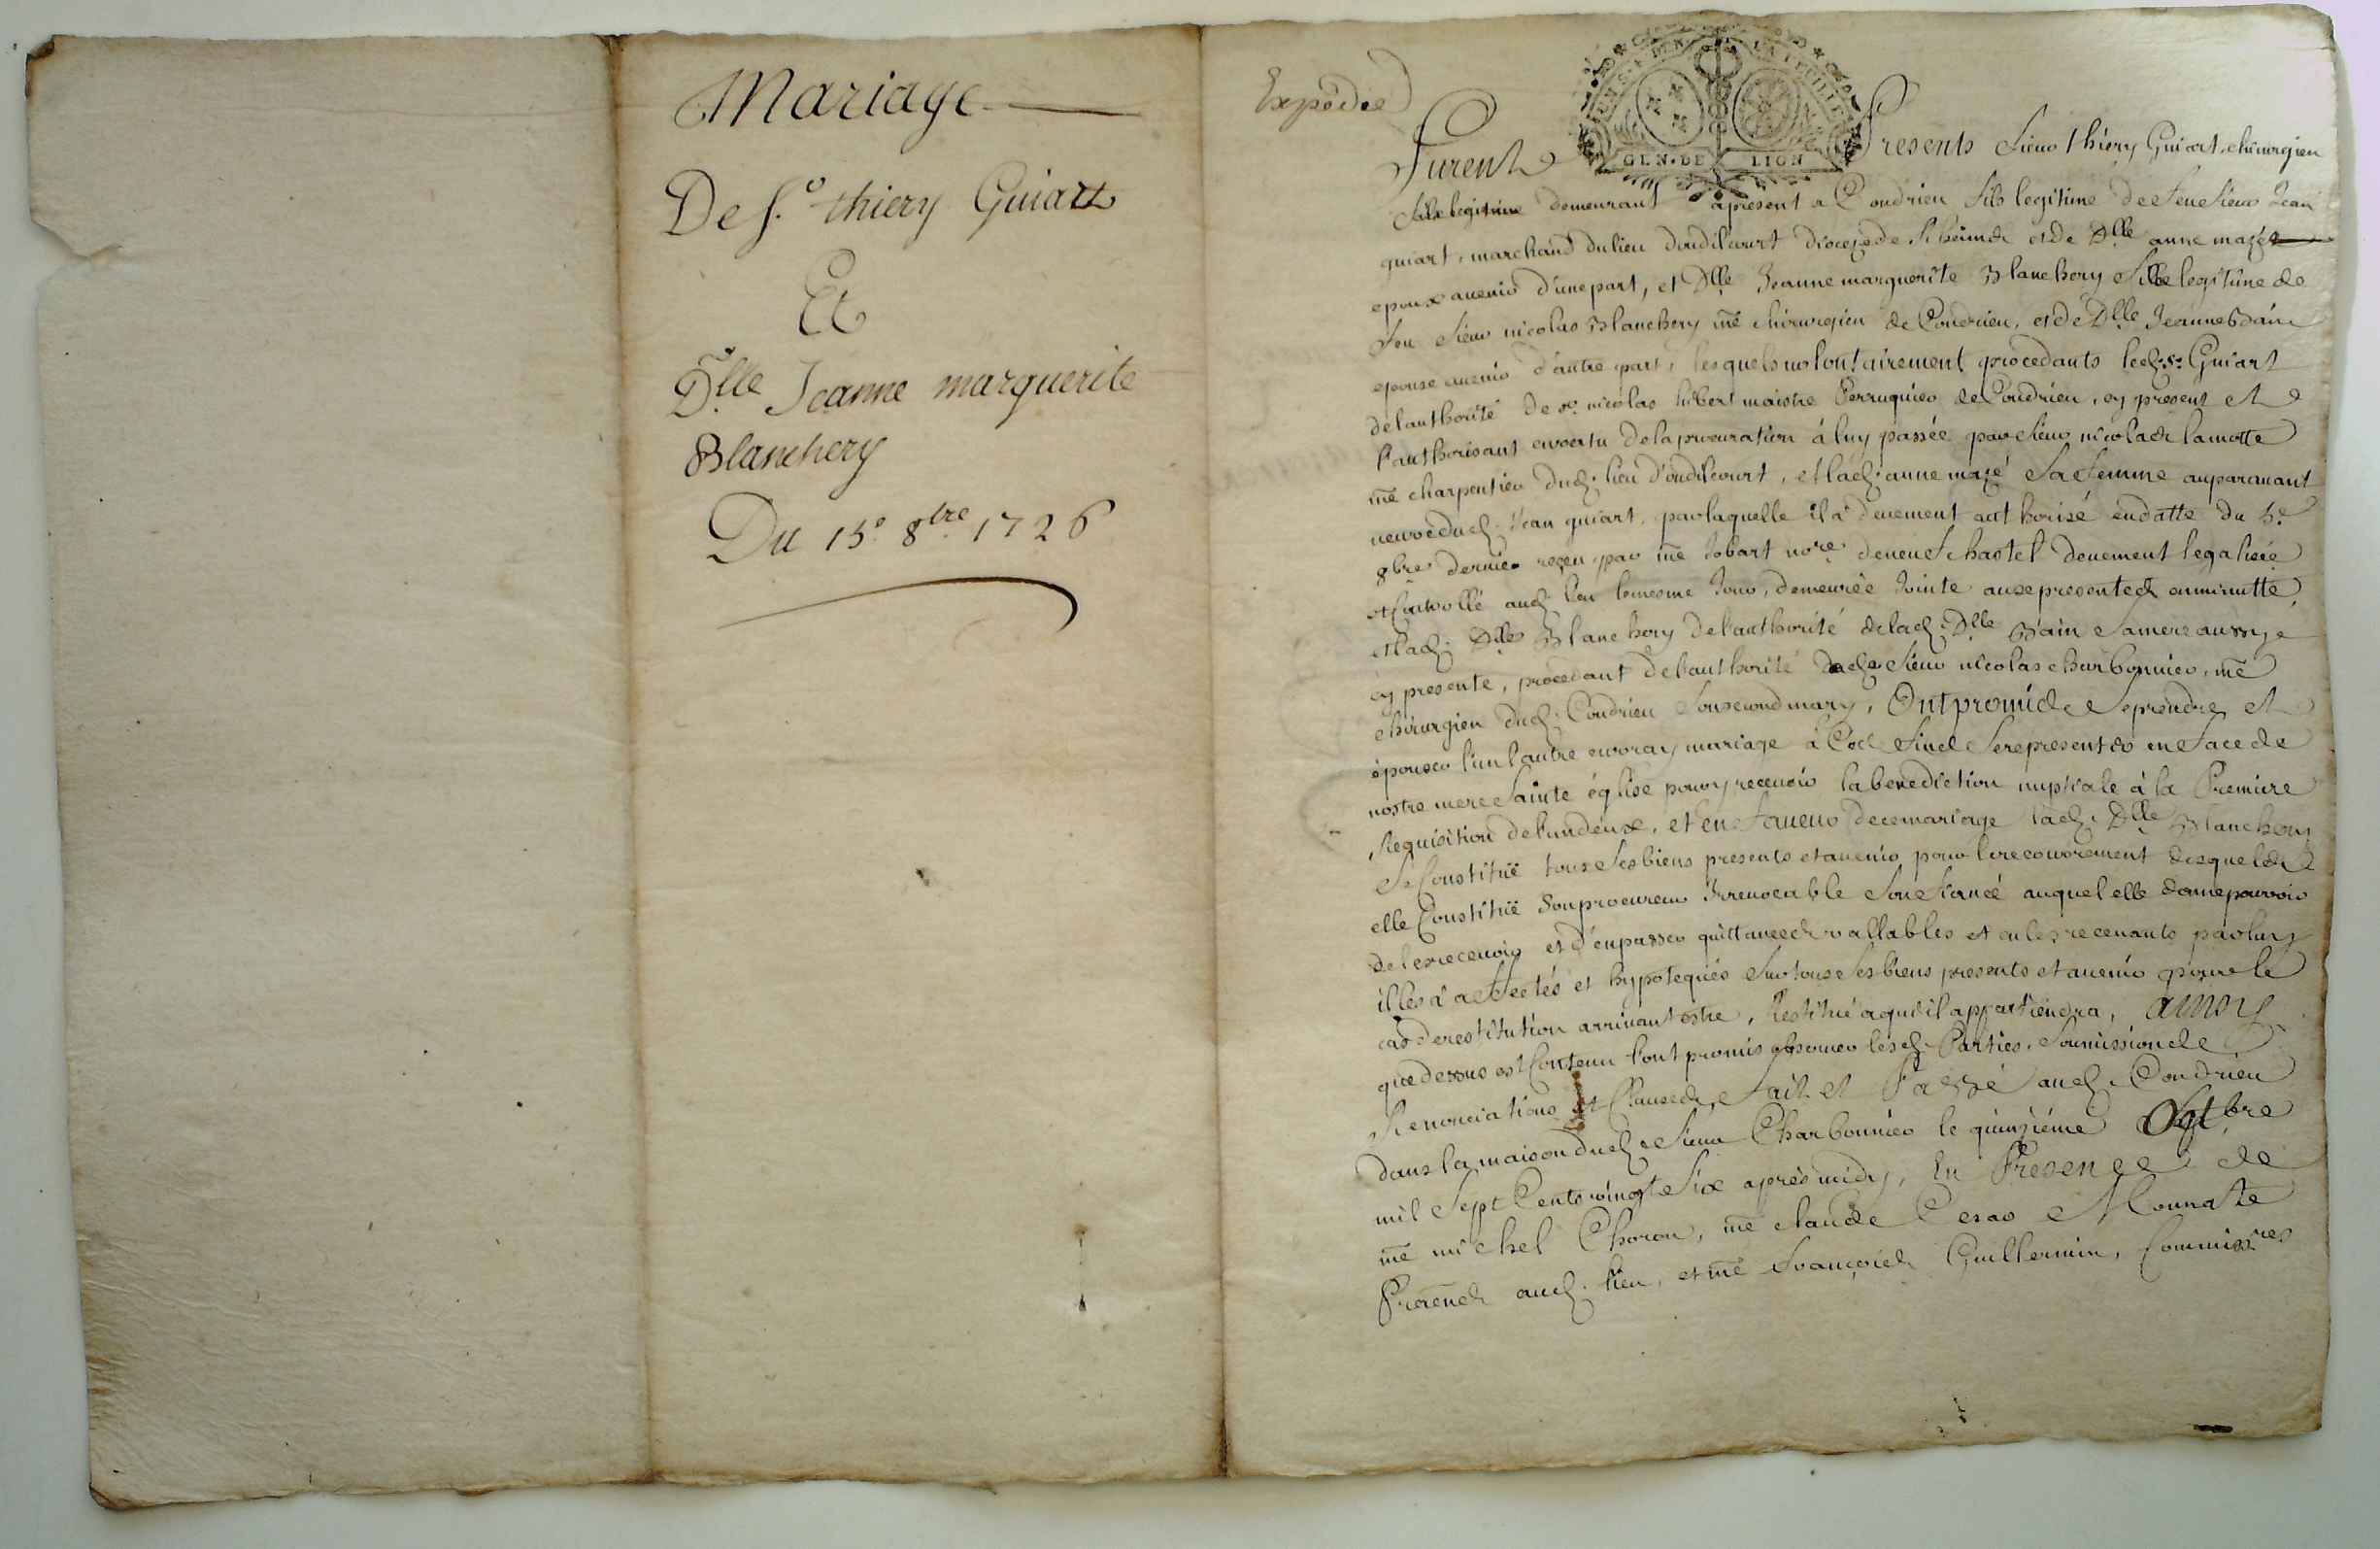 Mariage
De s.r thiery Guiart
Et
D.lle Jeanne marguerite
Blanchery
Du 15.e 8.bre 1726
Expedié
GEN. DE LION
Furent Presents sieur thiery Guiart chirurgien
fils legitime demeurant apresent a Condrieu fils legitime de feu sieur Jean
guiart, marchand du lieu doudilcourt diocese de Rheims et de D.lle anne mazé
epoux avenir d'une part, et D.lle Jeanne marguerite Blanchery fille legitime de
feu sieur nicolas Blanchery me chirurgien de Condrieu, et de D.lle Jeanne Bain
epouse avenir d'autre part, lesquels volontairement procedants led. sr. Guiart
de l'authorité de sr. nicolas hibert maistre Perruquier de Condrieu, cy present et
l'authorisant en vertu de la procuration à luy passée par sieur nicolas lamotte
me charpentier dud. lieu d'oudilcourt, et lad. anne mazé sa femme auparavant
veuve dud. Jean guiart, par laquelle il a deuement authorisé en datte du 5.e
8bre dernier receu par me Jobart no.re de neufchastel deuement legalisée
et controllé aud. lieu le mesme jour, demeurée jointe aux presentes en minutte,
et lad. D.lle Blanchery de l'authorité de lad. D.lle Bain sa mere aussy
cy presente, procedant de l'authorité dud. sieur nicolas charbonnier, me
chirurgien dud. Condrieu son second mary, Ont promis se prendre et
épouser l'un l'autre en vray mariage à ces fins se representer en face de
nostre mere sainte église pour y recevoir la benediction nuptiale à la Premiere
Requisition de l'un deux, et en faveur de ce mariage lad. D.lle Blanchery
se Constitüe tous ses biens presents et avenir pour le recouvrement desquels
elle Constitüe son procureur Irrevocable son fiancé auquel elle donne pouvoir
de les recevoir et d'en passer quittances vallables et en les recevants par luy
il les a affectés et hypotequés sur tous ses biens presents et avenir pour le
cas de restitution arrivant estre, Restitué a qui il appartiendra, ainsy
que dessus est Contenu l'ont promis observer lesd. Parties, soumissions
Renonciations et Clauses, Fait et Passé aud. Condrieu
dans la maison dud. sieur Charbonnier le quinziéme Octbre
mil sept Cents vingt six après midy, En Presence de
me michel Choron, me claude Cesar Mournate
Praticiens aud. lieu, et me françois Guillermin, Commiss.res